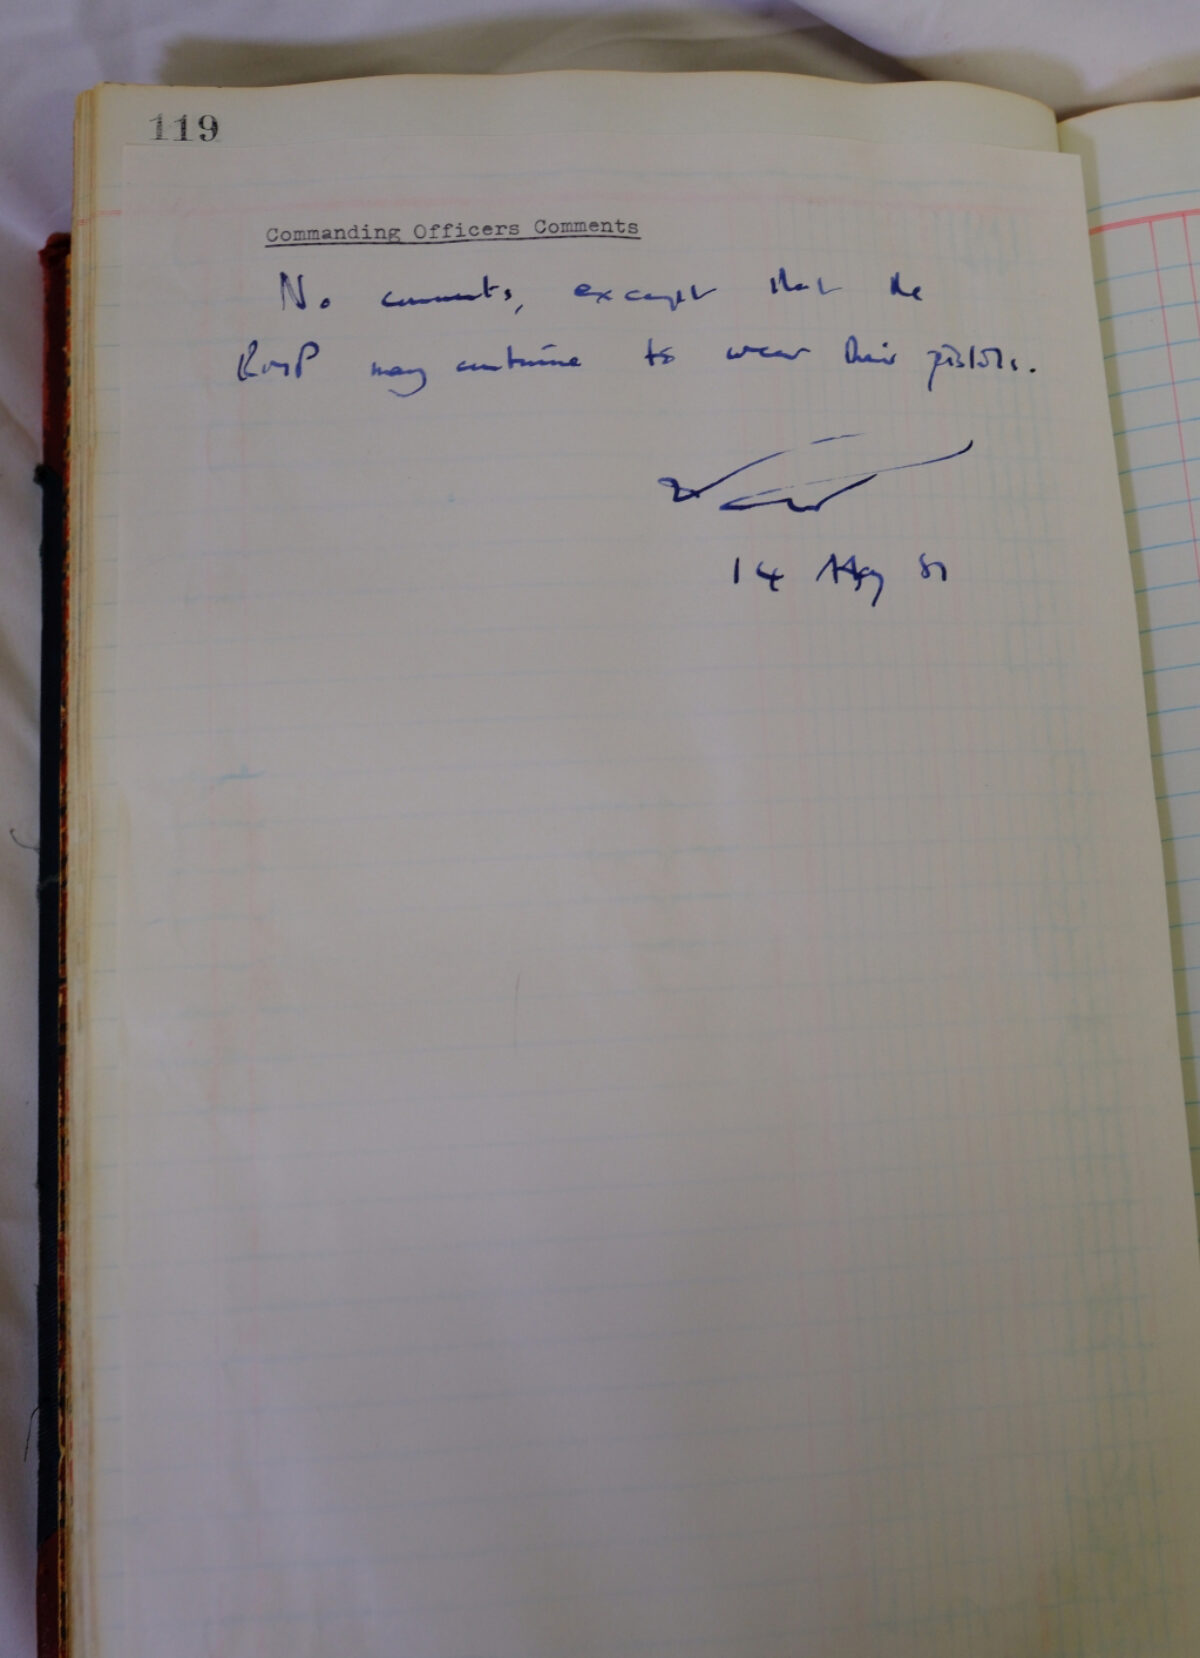 119
Commanding Officers Comments
No comments, except that the
RMP may continue to wear their pistols.
14 May 81